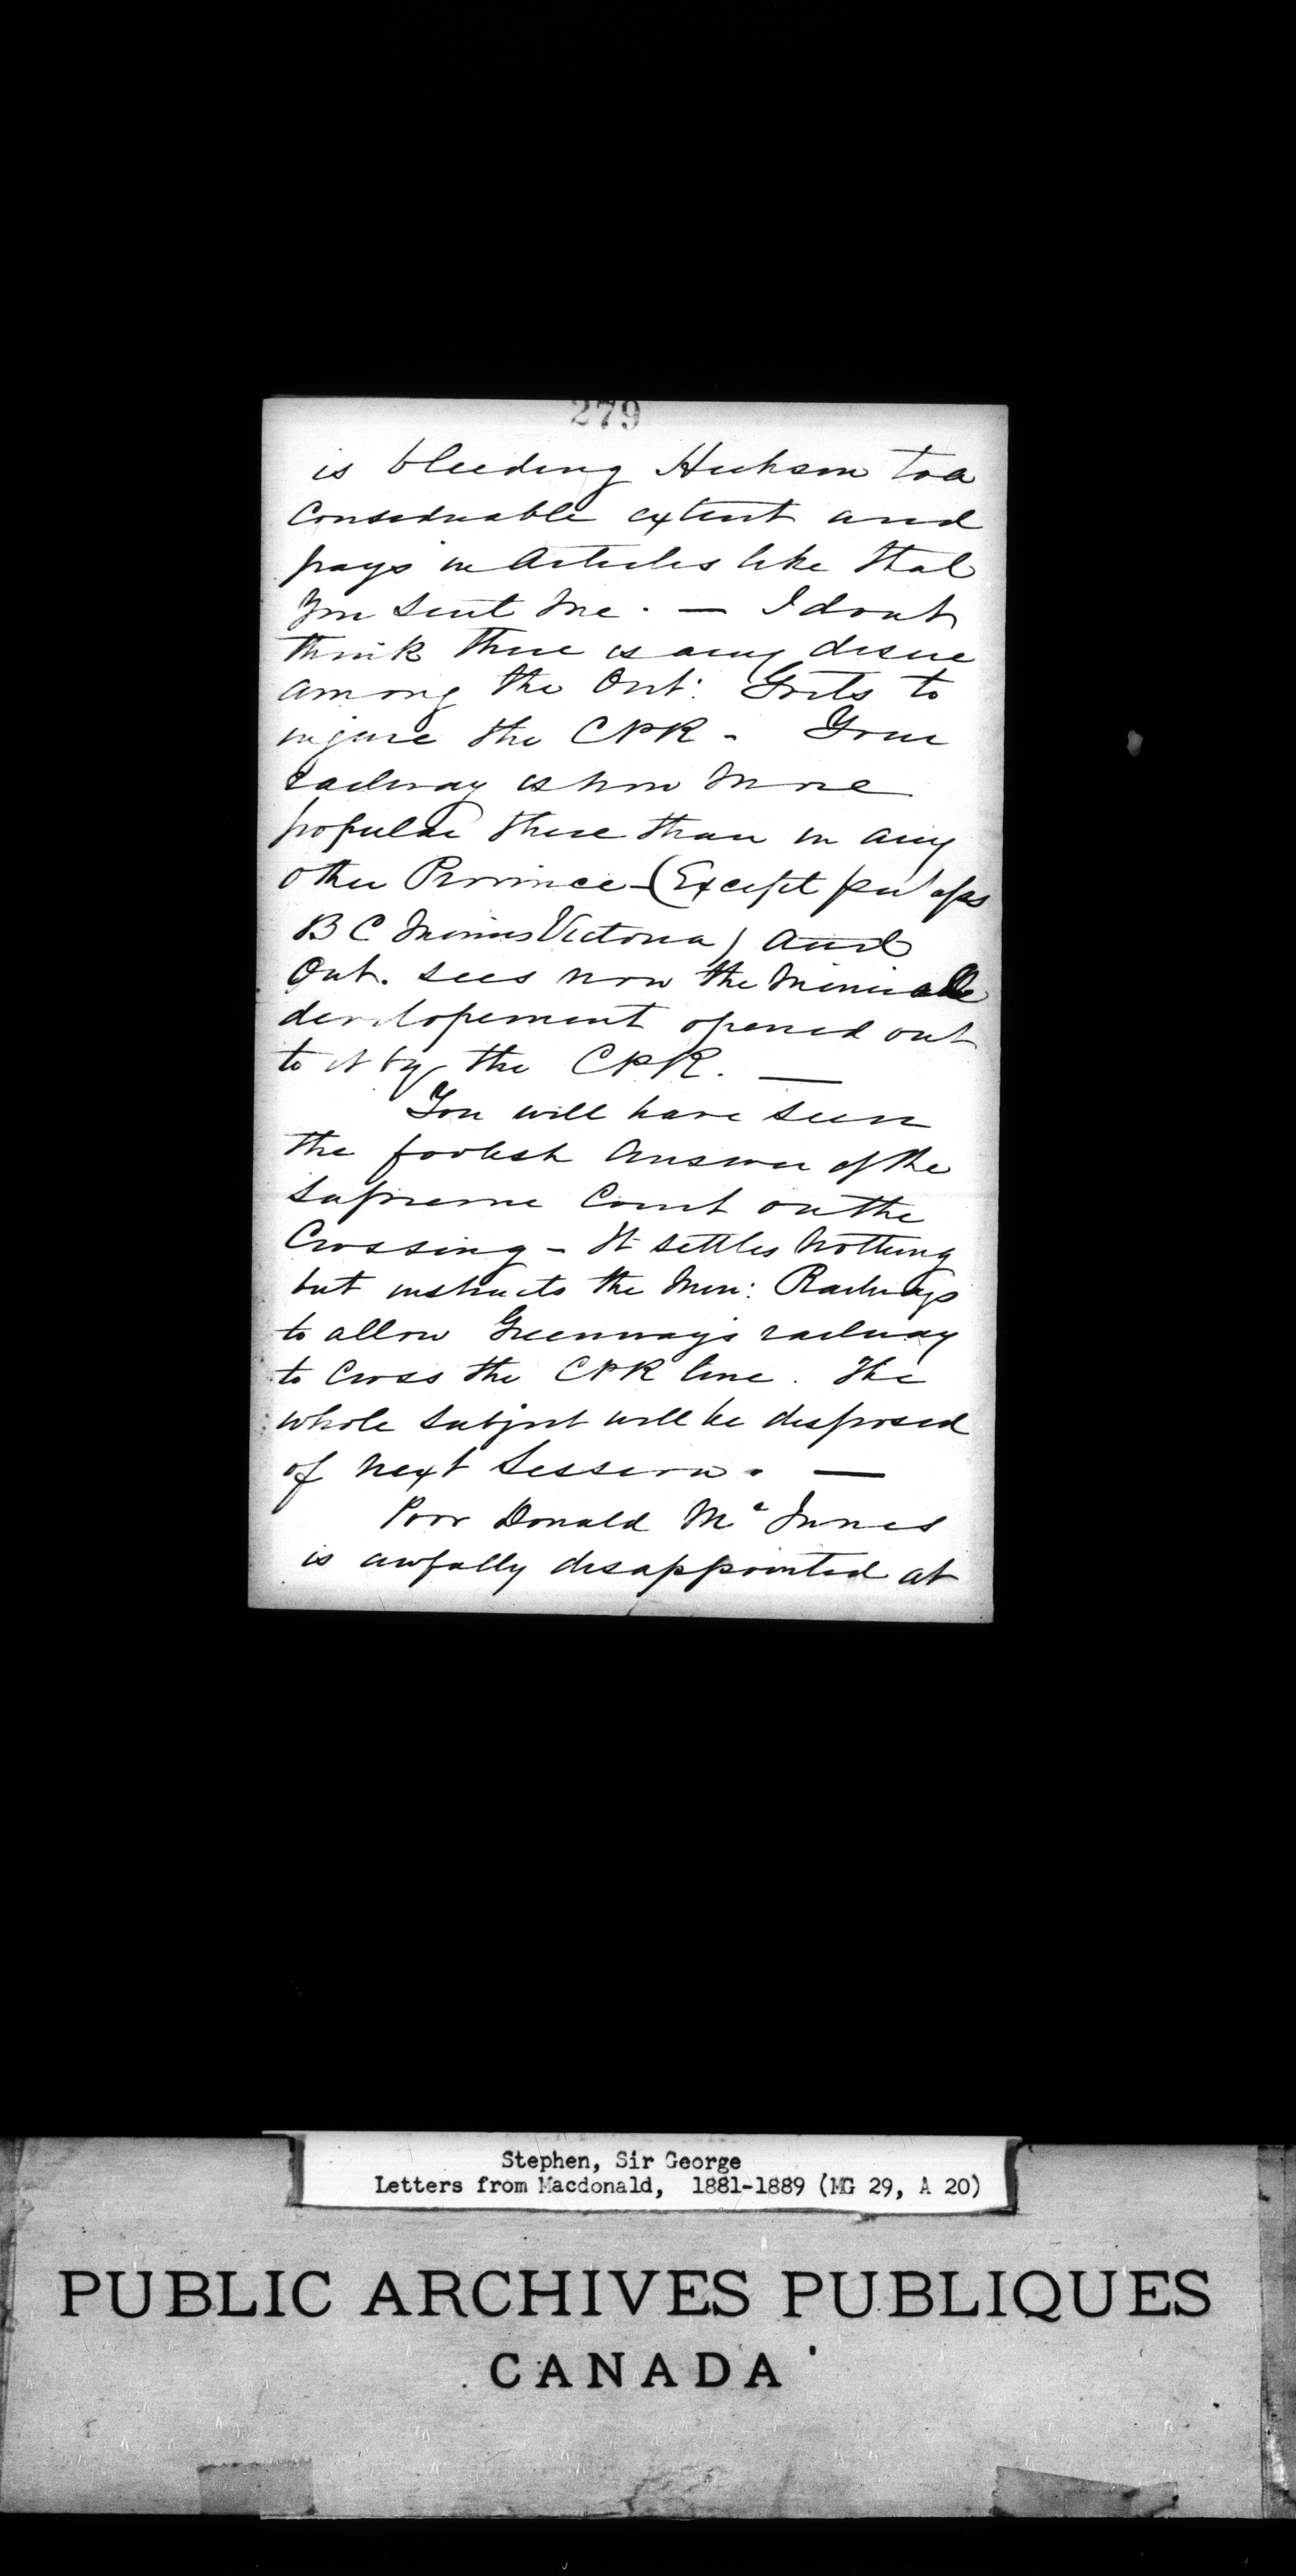 279
is bleeding Hickson to a
considerable extent and
pays in Articles like that
you sent me. — I dont
think there is any desire
among the Ont: Grits to
injure the CPR - Your
railway is now more
popular there than in any
other Province - (Except perhaps
B C minus Victoria) and
Ont. sees now the
developement opened out
to it by the CPR. —
You will have seen
the foolish answer of the
Supreme Court on the
Crossing - It settles nothing
but instructs the Min: Railways
to allow Greenway's railway
to cross the CPR line. The
whole subject will be disposed
of next Session. —
Poor Donald McInnes
is awfully disappointed at
Stephen, Sir George
Letters from Macdonald, 1881-1889 (MG 29, A 20)
PUBLIC ARCHIVES PUBLIQUES
CANADA